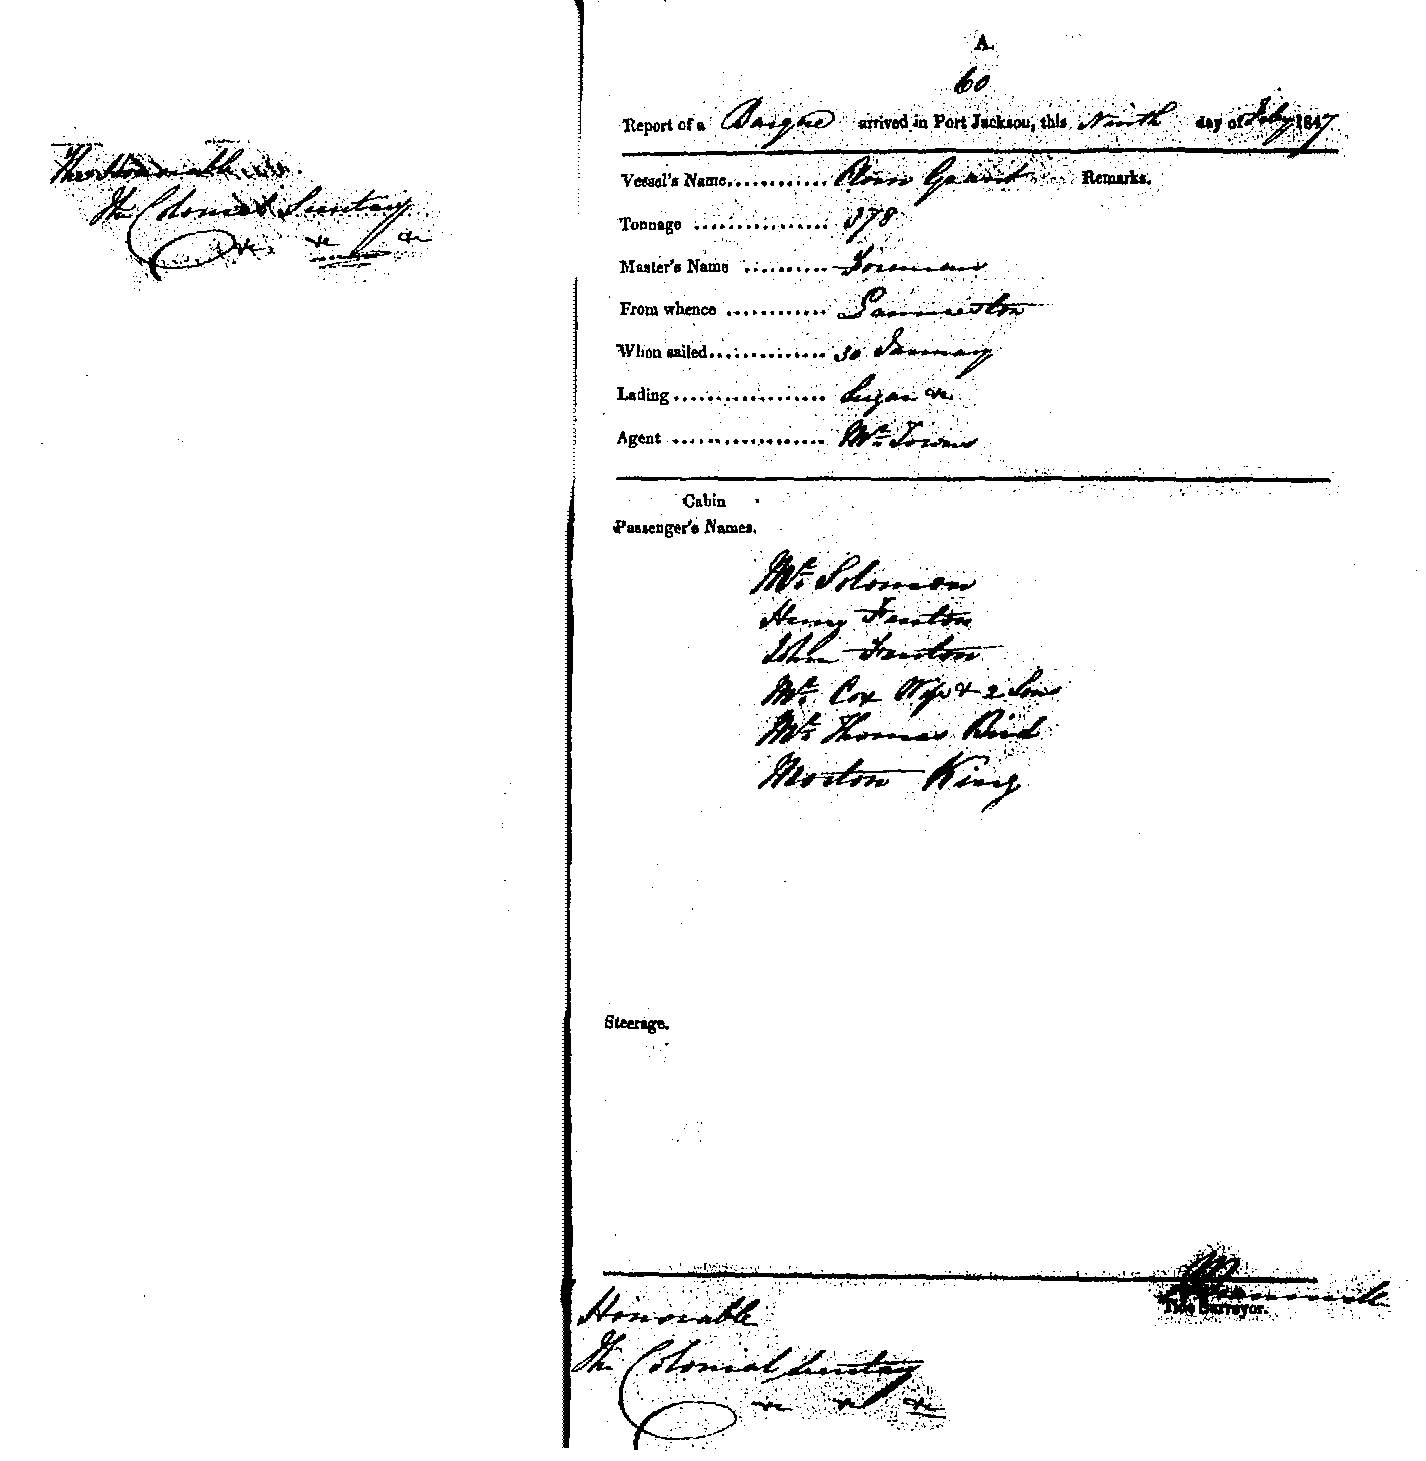 The Honorable
The Colonial Secretary
&c &c &c
A.
60
Report of a Barque arrived in Port Jackson, this Ninth day of Feby 1847
Vessel's Name............ Ann Grant Remarks.
Tonnage ................ 378
Master's Name .......... Foreman
From whence ............ Launceston
When sailed.............. 30 January
Lading................... Sugar &c.
Agent ................... Mr. Towns
Cabin
Passenger's Names.
Mr. Solomon
Henry Fenton
John Fenton
Mr. Cox Wife & 2 Sons
Mr. Thomas Bird
Morton King
Steerage.
Tide Surveyor.
Honorable
The Colonial Secretary
&c &c &c